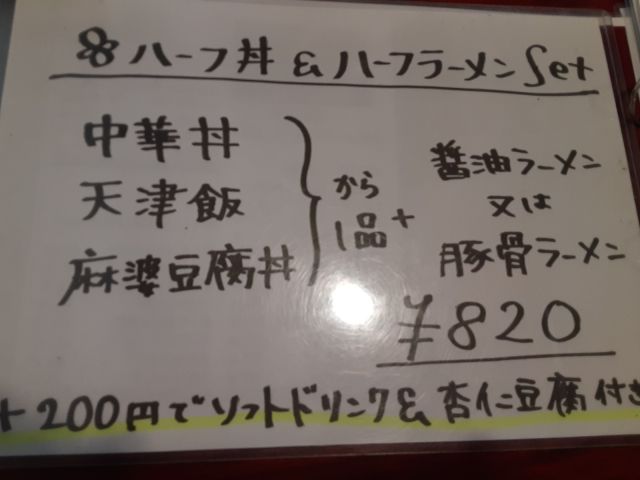 ハーフ丼 & ハーフラーメン Set
中華丼
天津飯
麻婆豆腐丼
から
1品
+
醤油ラーメン
又は
豚骨ラーメン
¥820
+200円でソフトドリンク&杏仁豆腐付き